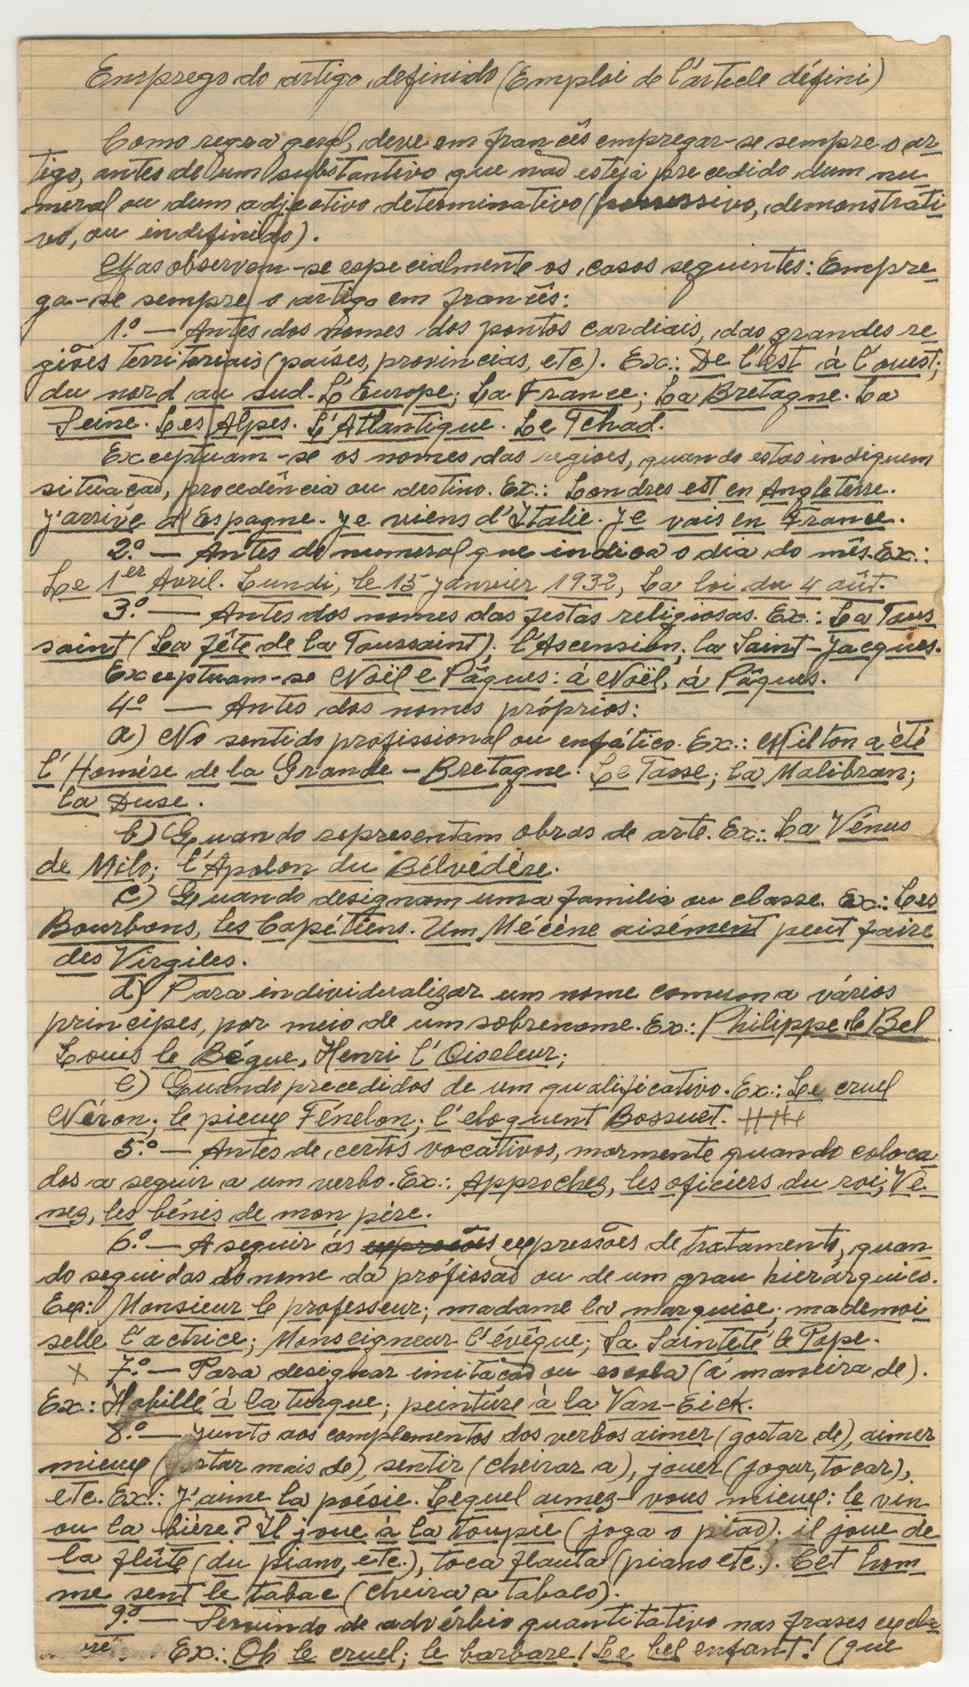 Emprego do artigo definido (Emploi de l'article défini)
Como regra geral, deve em francês empregar-se sempre o ar-
tigo, antes de um substantivo que não esteja precedido dum nu-
meral ou dum adjectivo determinativo (possessivo, demonstrati-
vo, ou indefinido).
Mas observem-se especialmente os casos seguintes: Empre-
ga-se sempre o artigo em francês:
1.º — Antes dos nomes dos pontos cardiais, das grandes re-
giões territoriais (países, províncias, etc). Ex.: De l'est à l'ouest;
du nord au sud. L'Europe; La France; La Bretagne. La
Seine. Les Alpes. L'Atlantique. Le Tchad.
Exceptuam-se os nomes das regiões, quando estas indiquem
situação, procedência ou destino. Ex.: Londres est en Angleterre.
J'arrive d'Espagne. Je viens d'Italie. Je vais en France.
2.º — Antes do numeral que indica o dia do mês. Ex.:
Le 1er Avril. Lundi, le 15 Janvier 1932, La loi du 4 aût.
3.º — Antes dos nomes das festas religiosas. Ex.: La Tous
saint (La fête de la Toussaint). l'Ascension; la Saint-Jacques.
Exceptuam-se Noël e Pâques: à Noël, à Pâques.
4º — Antes dos nomes próprios:
a) No sentido profissional ou enfático. Ex.: Milton a été
l'Homère de la Grande-Bretagne. Le Tasse; la Malibran;
la Duse.
b) Quando representam obras de arte. Ex.: La Vénus
de Milo; l'Apolon du Bélvédère.
c) Quando designam uma família ou classe. Ex.: Les
Bourbons, les Capétiens. Um Mécène aisément peut faire
des Virgiles.
d) Para individualizar um nome comum a vários
príncipes, por meio de um sobrenome. Ex.: Philippe le Bel
Louis le Bégue, Henri l'Oiseleur;
e) Quando precedidos de um qualificativo. Ex.: Le cruel
Néron; le pieux Fénelon; l'eloquent Bossuet.
5.º — Antes de certos vocativos, mormente quando coloca
dos a seguir a um verbo. Ex.: Approchez, les oficiers du roi; Ve-
nez, les bénis de mon père.
6.º — A seguir às expressões de tratamento, quan-
do seguidas do nome da profissão ou de um grau hierárquico.
Ex: Monsieur le professeur; madame la marquise; mademoi
selle l'actrice; Monseigneur l'évêque; Sa Sainteté le Pape.
x 7.º — Para designar imitação ou escola (à maneira de).
Ex.: Habillé à la turque; peinture à la Van-Eick.
8.º — Junto aos complementos dos verbos aimer (gostar de), aimer
mieux (gostar mais de), sentir (cheirar a), jouer (jogar, tocar),
etc. Ex.: J'aime la poésie. Lequel aimez-vous mieux: le vin
ou la bière? Il joue à la toupie (joga o pião). il joue de
la flûte (du piano, etc.), toca flauta (piano etc.). Cet hom-
me sent le tabac (cheira a tabaco).
9.º — Servindo de advérbio quantitativo nas frases excla
Ex.: Oh le cruel; le barbare! Le bel enfant! (que